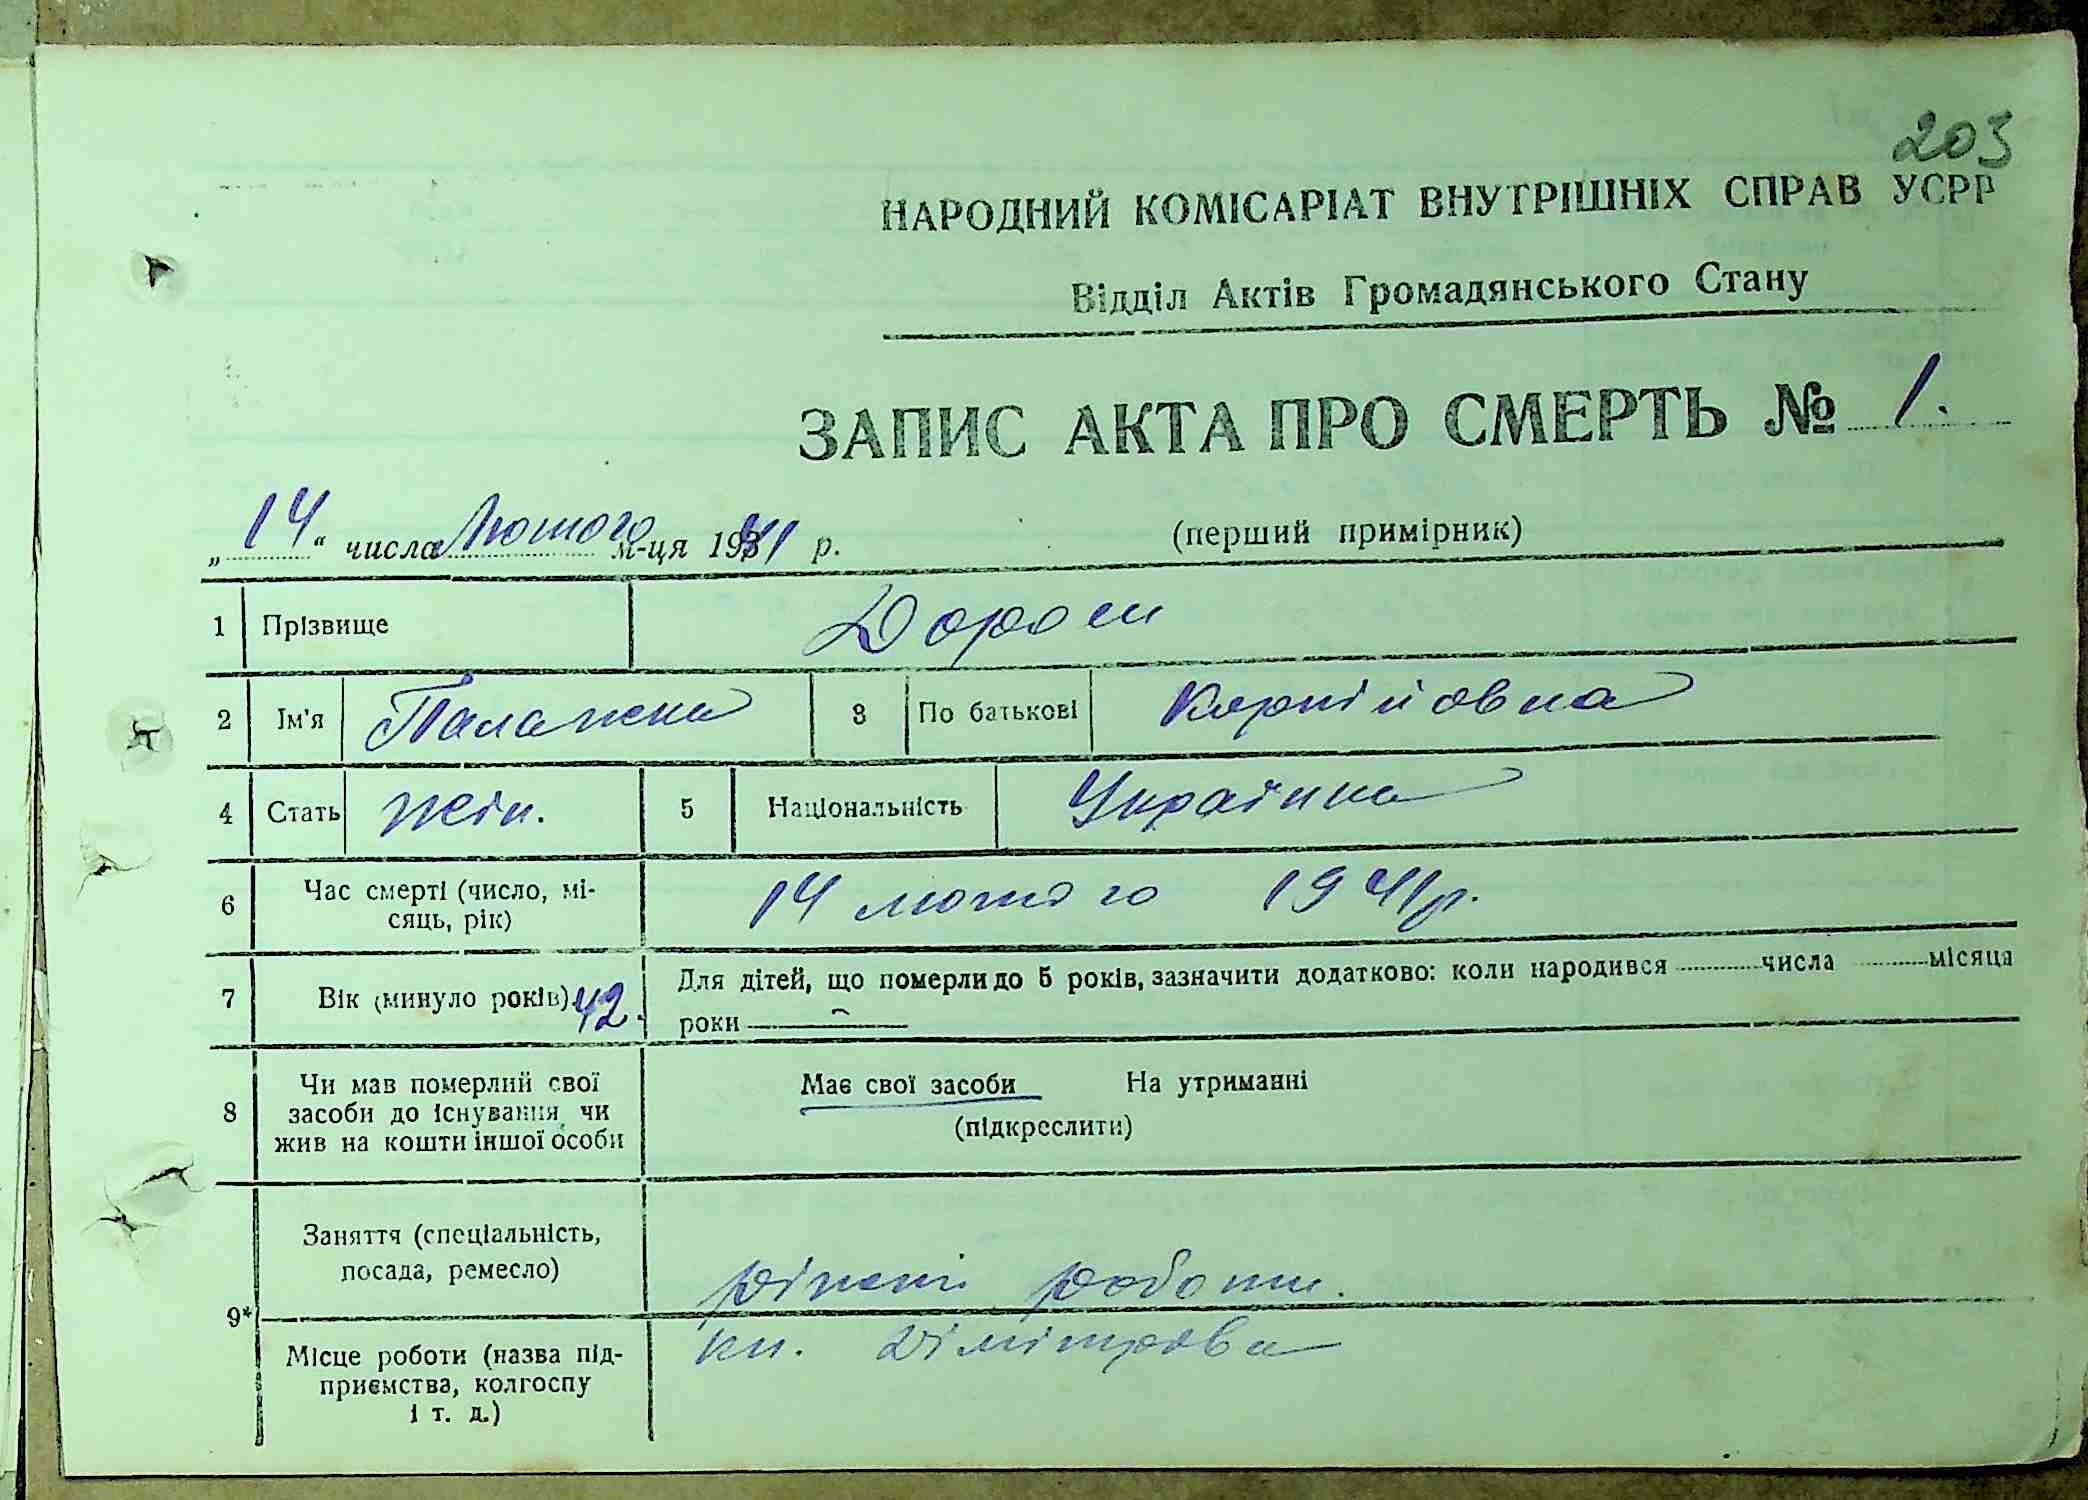 203
НАРОДНИЙ КОМІСАРІАТ ВНУТРІШНІХ СПРАВ УСРР
Відділ Актів Громадянського Стану
ЗАПИС АКТА ПРО СМЕРТЬ № 1.
„14“ числа Лютого м-ця 1941 р. (перший примірник)
1 Прізвище Дорош
2 Ім'я Палажка 3 По батькові Корнійовна
4 Стать жін. 5 Національність Українка
6 Час смерті (число, мі-
сяць, рік) 14 лютого 1941р.
7 Вік (минуло років) 42. Для дітей, що померли до 5 років, зазначити додатково: коли народився числа місяця
роки
8 Чи мав померлий свої
засоби до існування, чи
жив на кошти іншої особи
Має свої засоби На утриманні
(підкреслити)
9* Заняття (спеціальність,
посада, ремесло) різні роботи.
Місце роботи (назва під-
приємства, колгоспу
і т. д.) Дімітрова